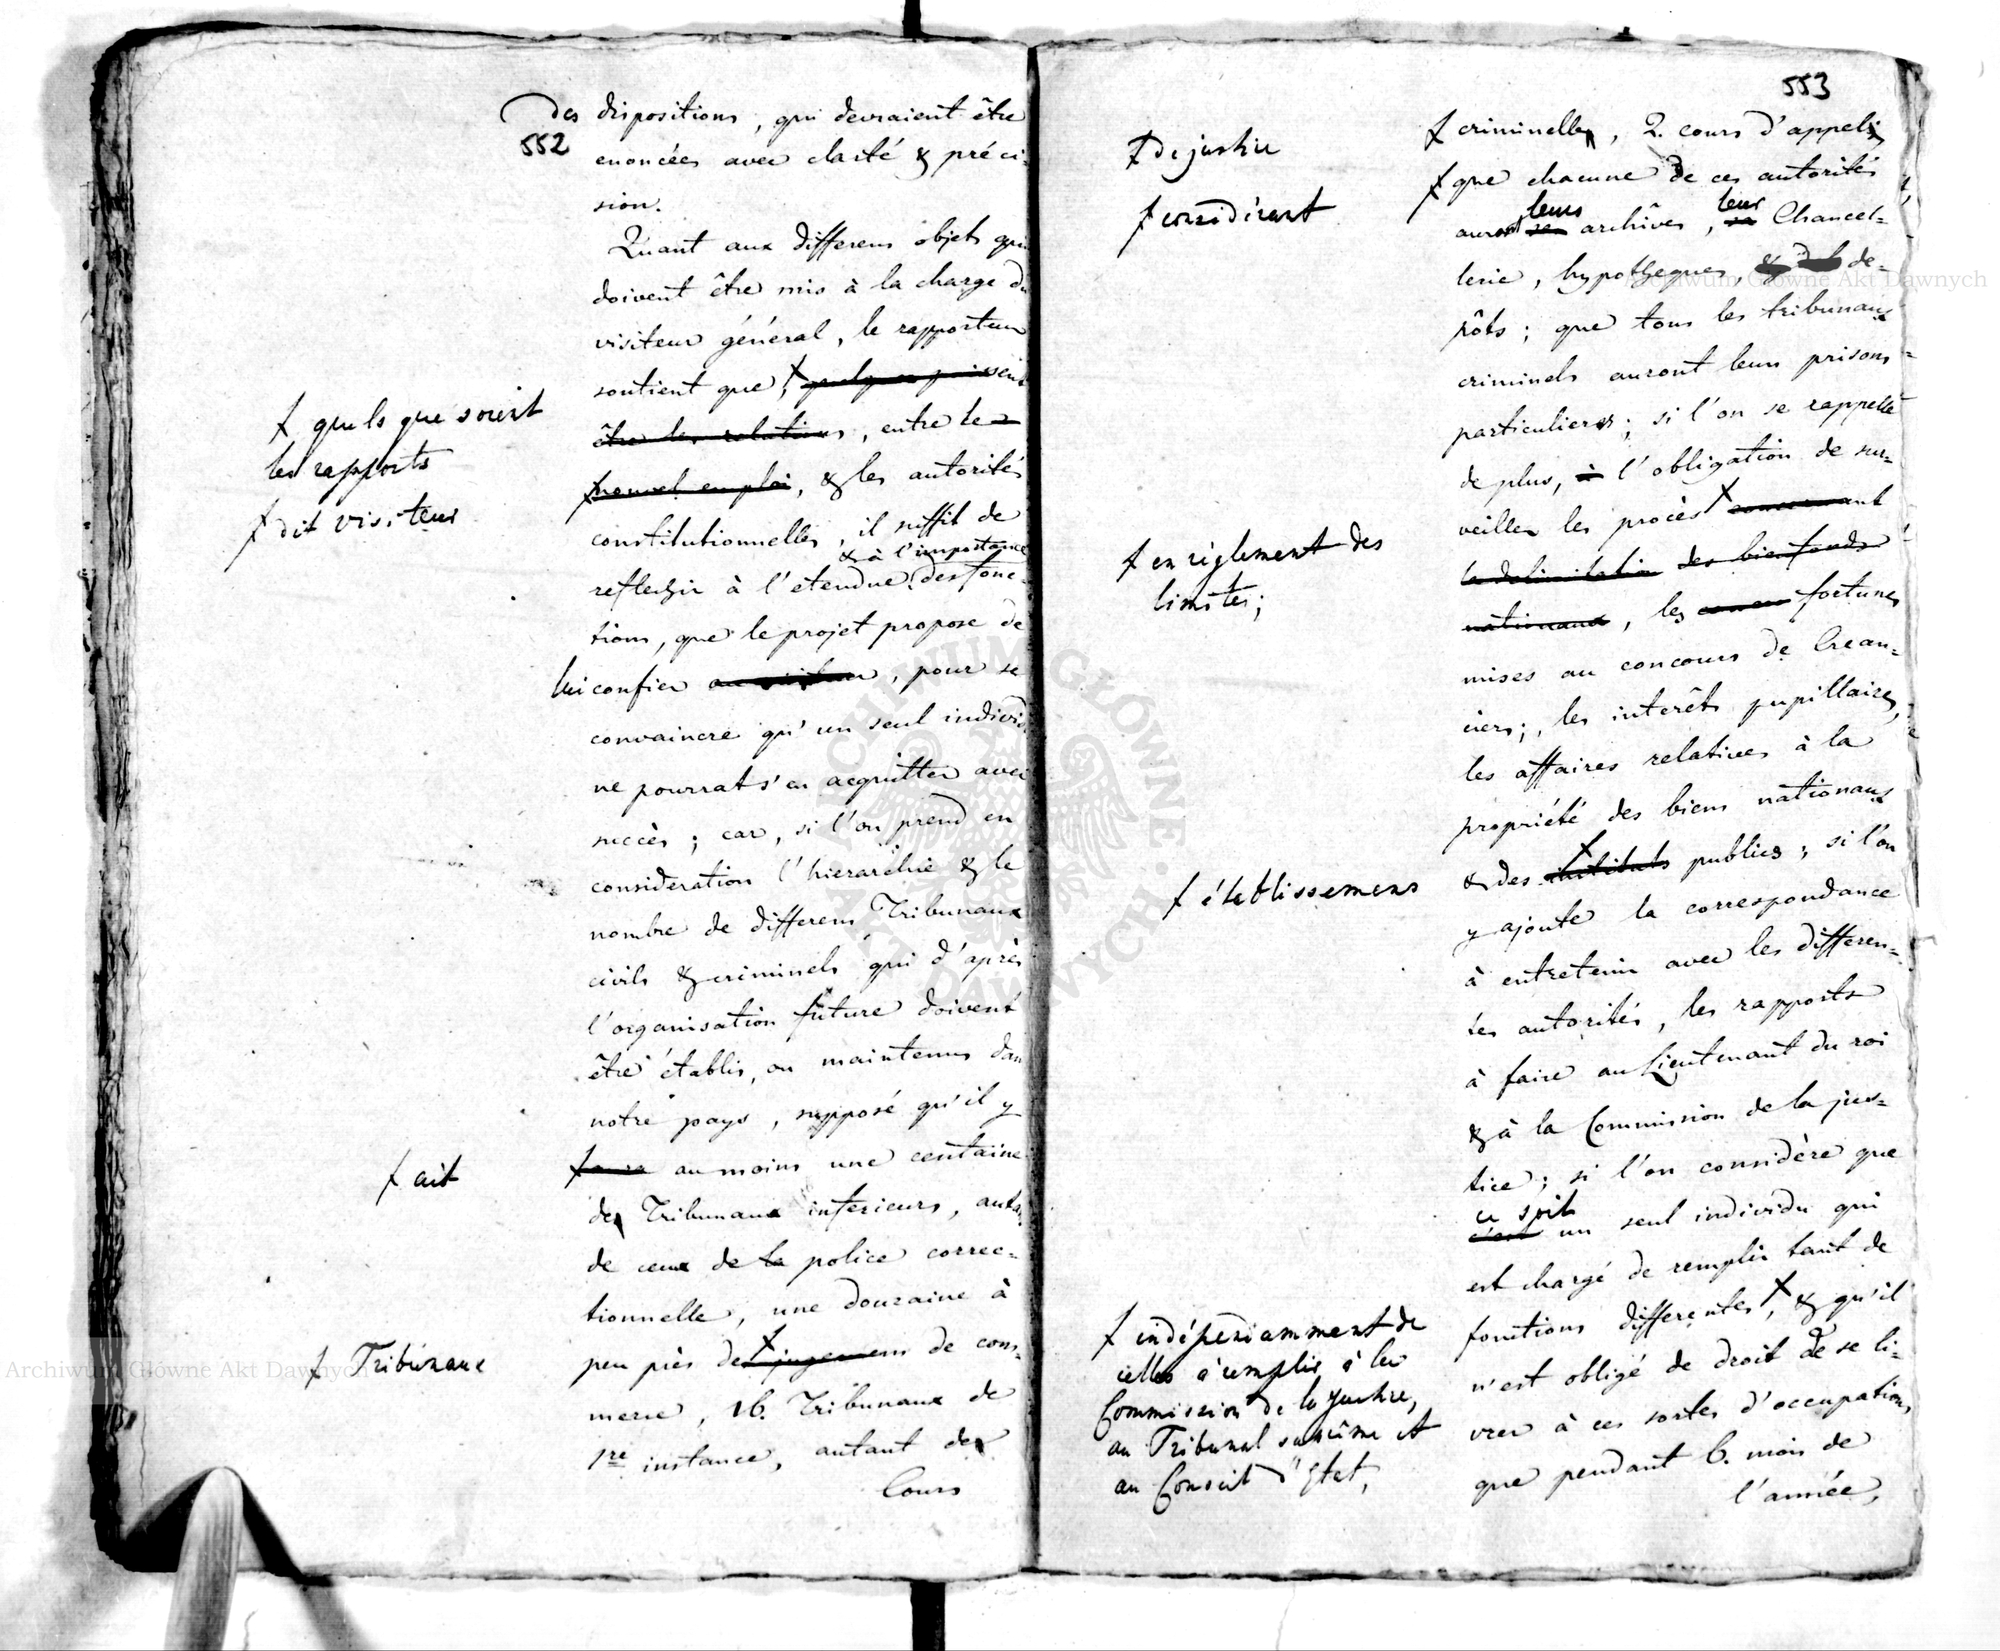 552
des dispositions, qui devraient être
enoncées avec clarté & préci-
sion.
Quant aux differens objets qui
doivent être mis à la charge du
visiteur général, le rapporteur
soutient que, quelques puissent
être les relations, entre le
nouvel emploi, & les autorités
constitutionnelles, il suffit de
& à l'importance
reflechir à l'etendue des fonc-
tions, que le projet propose de
lui confier au visiteur, pour se
convaincre qu'un seul individu
ne pourrat s'en acquitter avec
succès ; car, si l'on prend en
consideration l'hierarchie & le
nombre de differens Tribunaux
civils & criminels qui d'après
l'organisation future doivent
être établis, ou maintenus dans
notre pays, supposé qu'il y
au moins une centaine
des Tribunaux inferieurs, autant
de ceux de la police correc-
tionnelle, une douzaine à
peu près de jugemens de com-
merce, 16. Tribunaux de
1re instance, autant des
Cours
quels que soient
les rapports
dit visiteur
ait
Tribunaux
553
criminelles, 2. cours d'appels
que chacune de ces autorités
leurs leur
auront ses archives, sa Chancel-
lerie, hypotheques, & de-
pôts ; que tous les tribunaux
criminels auront leurs prisons
particuliers ; si l'on se rappelle
de plus, à l'obligation de sur-
veiller les procès concernant
la delimitation des bienfonds
nationaux, les fortunes
mises au concours de Crean-
ciers ; les interêts pupillaires,
les affaires relatives à la
propriété des biens nationaux
& des instituts publics ; si l'on
y ajoute la correspondance
à entretenir avec les differen-
tes autorités, les rapports
à faire au Lieutenant du roi
& à la Commission de la jus-
tice ; si l'on considère que
ce soit
c'est un seul individu qui
est chargé de remplir tant de
fonctions differentes, & qu'il
n'est obligé de droit de se li-
vrer à ces sortes d'occupations
que pendant 6. mois de
l'année,
de justice
considérant
en règlement des
limites ;
établissemens
indépendamment de
celles à remplir à la
Commission de la justice,
au Tribunal suprême et
au Conseil d'Etat,
Archiwum Główne Akt Dawnych
Archiwum Główne Akt Dawnych
ARCHIWUM GŁÓWNE AKT DAWNYCH